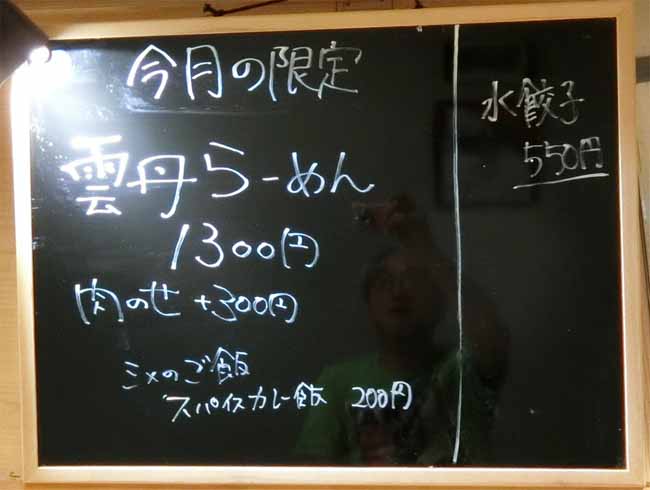 今月の限定
雲丹らーめん
1300円
肉のせ +300円
〆のご飯
スパイスカレー飯 200円
水餃子
550円